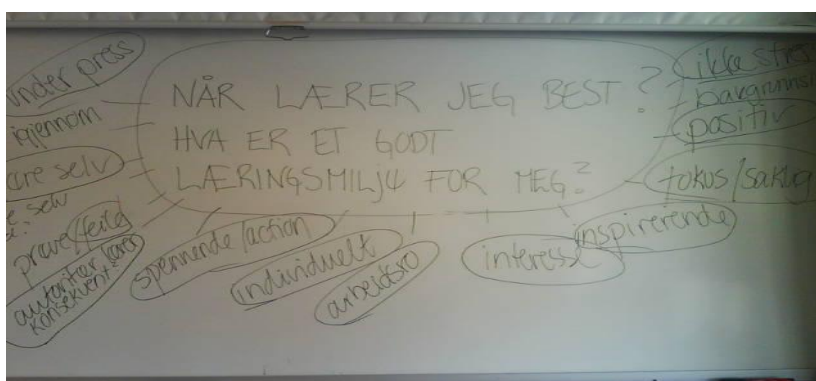 NÅR LÆRER JEG BEST?
HVA ER ET GODT
LÆRINGSMILJø FOR MEG?
under press
igjennom
selv
selv
prøve/feile
autoritær lærer
konsekvent
spennende/action
individuelt
arbeidsro
interesse
inspirerende
fokus/saklig
positiv
ikke